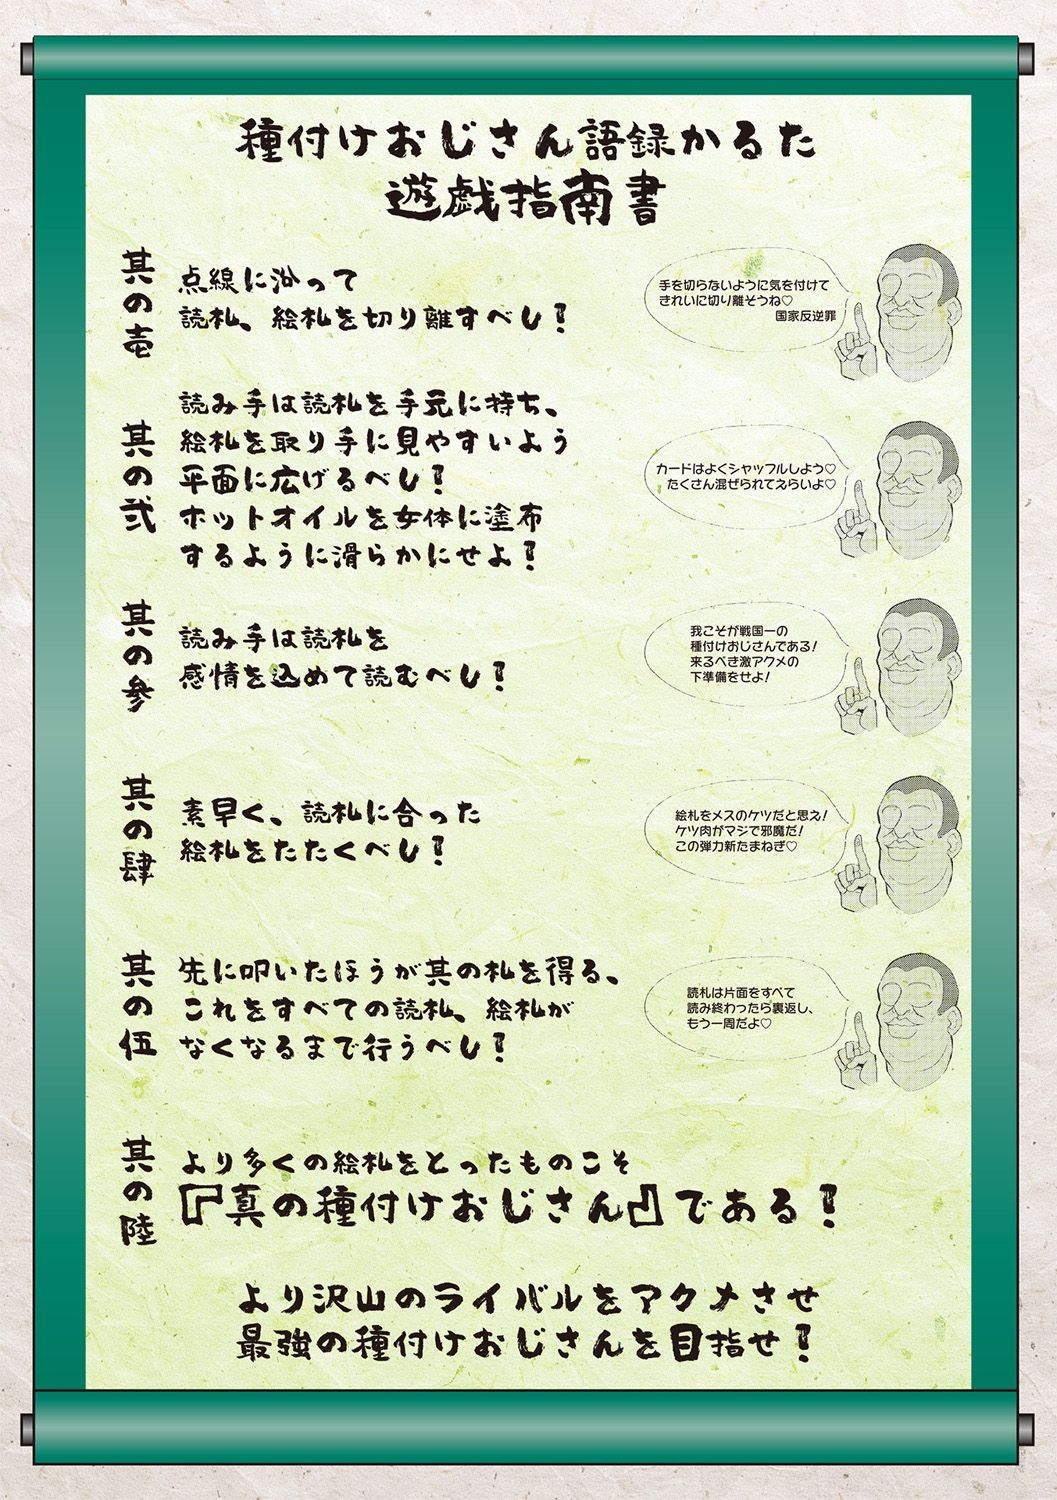 種付けおじさん語録かるた
遊戯指南書
其の壱
点線に沿って
読札、絵札を切り離すべし!
手を切らないように気を付けて
きれいに切り離そうね♡
国家反逆罪
其の弐
読み手は読札を手元に持ち、
絵札を取り手に見やすいよう
平面に広げるべし!
ホットオイルを女体に塗布
するように滑らかにせよ!
カードはよくシャッフルしよう♡
たくさん混ぜられてえらいよ♡
其の参
読み手は読札を
感情を込めて読むべし!
我こそが戦国一の
種付けおじさんである!
来るべき激アクメの
下準備をせよ!
其の肆
素早く、読札に合った
絵札をたたくべし!
絵札をメスのケツだと思え!
ケツ肉がマジで邪魔だ!
この弾力新たまねぎ♡
其の伍
先に叩いたほうが其の札を得る、
これをすべての読札、絵札が
なくなるまで行うべし!
読札は片面をすべて
読み終わったら裏返し、
もう一周だよ♡
其の陸
より多くの絵札をとったものこそ
『真の種付けおじさん』である!
より沢山のライバルをアクメさせ
最強の種付けおじさんを目指せ!